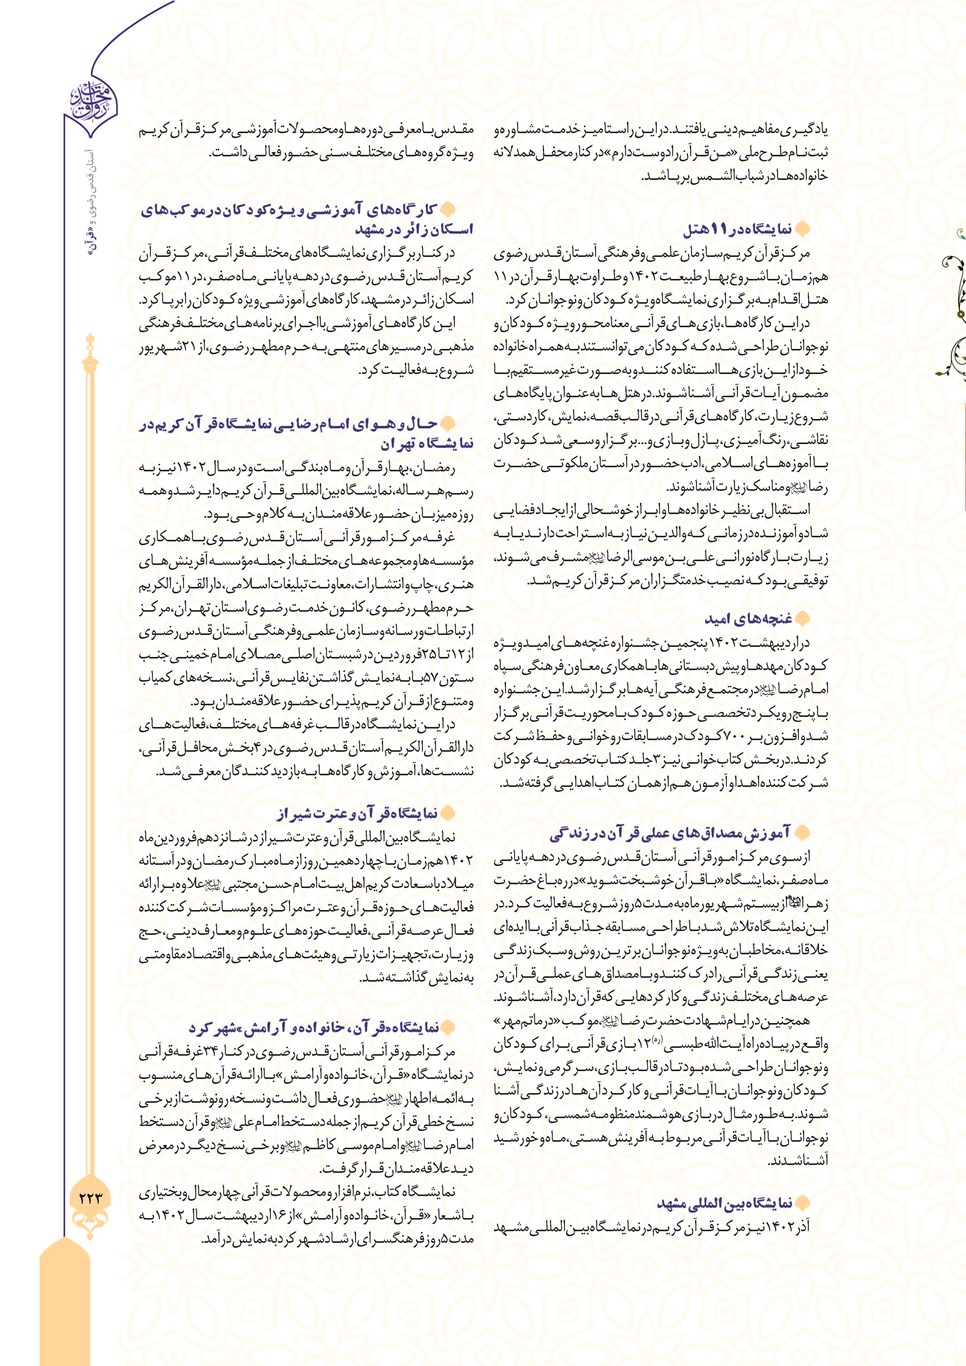 آستان قدس رضوی و «قرآن»
یادگیری مفاهیم دینی یافتند. در این راستا میز خدمت مشاوره و
ثبت‌نام طرح ملی «من قرآن را دوست دارم» در کنار محفل همدلانه
خانواده‌ها در شباب الشمس برپا شد.
نمایشگاه در ۱۱ هتل
مرکز قرآن کریم سازمان علمی و فرهنگی آستان قدس رضوی
هم‌زمان با شروع بهار طبیعت ۱۴۰۲ و طراوت بهار قرآن در ۱۱
هتل اقدام به برگزاری نمایشگاه ویژه کودکان و نوجوانان کرد.
در این کارگاه‌ها، بازی‌های قرآنی معنامحور ویژه کودکان و
نوجوانان طراحی شده که کودکان می‌توانستند به همراه خانواده
خود از این بازی‌ها استفاده کنند و به صورت غیرمستقیم با
مضمون آیات قرآنی آشنا شوند. در هتل‌ها به عنوان پایگاه‌های
شروع زیارت، کارگاه‌های قرآنی در قالب قصه، نمایش، کاردستی،
نقاشی، رنگ‌آمیزی، پازل و بازی و... برگزار و سعی شد کودکان
با آموزه‌های اسلامی، ادب حضور در آستان ملکوتی حضرت
رضا علیه‌السلام و مناسک زیارت آشنا شوند.
استقبال بی‌نظیر خانواده‌ها و ابراز خوشحالی از ایجاد فضایی
شاد و آموزنده در زمانی که والدین نیاز به استراحت دارند یا به
زیارت بارگاه نورانی علی بن موسی الرضا علیه‌السلام مشرف می‌شوند،
توفیقی بود که نصیب خدمتگزاران مرکز قرآن کریم شد.
غنچه‌های امید
در اردیبهشت ۱۴۰۲ پنجمین جشنواره غنچه‌های امید ویژه
کودکان مهدها و پیش‌دبستانی‌ها با همکاری معاون فرهنگی سپاه
امام رضا علیه‌السلام در مجتمع فرهنگی آیه‌ها برگزار شد. این جشنواره
با پنج رویکرد تخصصی حوزه کودک با محوریت قرآنی برگزار
شد و افزون بر ۷۰۰ کودک در مسابقات روخوانی و حفظ شرکت
کردند. در بخش کتاب‌خوانی نیز ۳ جلد کتاب تخصصی به کودکان
شرکت‌کننده اهدا و آزمون هم از همان کتاب اهدایی گرفته شد.
آموزش مصداق‌های عملی قرآن در زندگی
از سوی مرکز امور قرآنی آستان قدس رضوی در دهه پایانی
ماه صفر، نمایشگاه «با قرآن خوشبخت شوید» در ره باغ حضرت
زهرا علیهاالسلام از بیستم شهریور ماه به مدت ۵ روز شروع به فعالیت کرد. در
این نمایشگاه تلاش شد با طراحی مسابقه جذاب قرآنی با ایده‌ای
خلاقانه، مخاطبان به ویژه نوجوانان برترین روش و سبک زندگی
یعنی زندگی قرآنی را درک کنند و با مصداق‌های عملی قرآن در
عرصه‌های مختلف زندگی و کارکردهایی که قرآن دارد، آشنا شوند.
همچنین در ایام شهادت حضرت رضا علیه‌السلام، موکب «در ماتم مهر»
واقع در پیاده راه آیت الله طبسی (ره) ۱۲ بازی قرآنی برای کودکان
و نوجوانان طراحی شده بود تا در قالب بازی، سرگرمی و نمایش،
کودکان و نوجوانان با آیات قرآنی و کارکرد آن‌ها در زندگی آشنا
شوند. به طور مثال در بازی هوشمند منظومه شمسی، کودکان و
نوجوانان با آیات قرآنی مربوط به آفرینش هستی، ماه و خورشید
آشنا شدند.
نمایشگاه بین المللی مشهد
آذر ۱۴۰۲ نیز مرکز قرآن کریم در نمایشگاه بین‌المللی مشهد
مقدس با معرفی دوره‌ها و محصولات آموزشی مرکز قرآن کریم
ویژه گروه‌های مختلف سنی حضور فعالی داشت.
کارگاه‌های آموزشی ویژه کودکان در موکب‌های
اسکان زائر در مشهد
در کنار برگزاری نمایشگاه‌های مختلف قرآنی، مرکز قرآن
کریم آستان قدس رضوی در دهه پایانی ماه صفر، در ۱۱ موکب
اسکان زائر در مشهد، کارگاه‌های آموزشی ویژه کودکان را برپا کرد.
این کارگاه‌های آموزشی با اجرای برنامه‌های مختلف فرهنگی
مذهبی در مسیرهای منتهی به حرم مطهر رضوی، از ۲۱ شهریور
شروع به فعالیت کرد.
حال و هوای امام رضایی نمایشگاه قرآن کریم در
نمایشگاه تهران
رمضان، بهار قرآن و ماه بندگی است و در سال ۱۴۰۲ نیز به
رسم هر ساله، نمایشگاه بین‌المللی قرآن کریم دایر شد و همه
روزه میزبان حضور علاقه‌مندان به کلام وحی بود.
غرفه مرکز امور قرآنی آستان قدس رضوی با همکاری
مؤسسه‌ها و مجموعه‌های مختلف از جمله مؤسسه آفرینش‌های
هنری، چاپ و انتشارات، معاونت تبلیغات اسلامی، دارالقرآن الکریم
حرم مطهر رضوی، کانون خدمت رضوی استان تهران، مرکز
ارتباطات و رسانه و سازمان علمی و فرهنگی آستان قدس رضوی
از ۱۲ تا ۲۵ فروردین در شبستان اصلی مصلای امام خمینی جنب
ستون ۵۷ با به نمایش گذاشتن نفایس قرآنی، نسخه‌های کمیاب
و متنوع از قرآن کریم پذیرای حضور علاقه‌مندان بود.
در این نمایشگاه در قالب غرفه‌های مختلف، فعالیت‌های
دارالقرآن الکریم آستان قدس رضوی در ۴ بخش محافل قرآنی،
نشست‌ها، آموزش و کارگاه‌ها به بازدیدکنندگان معرفی شد.
نمایشگاه قرآن و عترت شیراز
نمایشگاه بین‌المللی قرآن و عترت شیراز در شانزدهم فروردین ماه
۱۴۰۲ هم‌زمان با چهاردهمین روز از ماه مبارک رمضان و در آستانه
میلاد با سعادت کریم اهل بیت امام حسن مجتبی علیه‌السلام علاوه بر ارائه
فعالیت‌های حوزه قرآن و عترت مراکز و مؤسسات شرکت کننده
فعال عرصه قرآنی، فعالیت حوزه‌های علوم و معارف دینی، حج
و زیارت، تجهیزات زیارتی و هیئت‌های مذهبی و اقتصاد مقاومتی
به نمایش گذاشته شد.
نمایشگاه «قرآن، خانواده و آرامش» شهرکرد
مرکز امور قرآنی آستان قدس رضوی در کنار ۳۴ غرفه قرآنی
در نمایشگاه «قرآن، خانواده و آرامش» با ارائه قرآن‌های منسوب
به ائمه اطهار علیهم‌السلام حضوری فعال داشت و نسخه رونوشت از برخی
نسخ خطی قرآن کریم از جمله دستخط امام علی علیه‌السلام و قرآن دستخط
امام رضا علیه‌السلام و امام موسی کاظم علیه‌السلام و برخی نسخ دیگر در معرض
دید علاقه‌مندان قرار گرفت.
نمایشگاه کتاب، نرم‌افزار و محصولات قرآنی چهارمحال و بختیاری
با شعار «قرآن، خانواده و آرامش» از ۱۶ اردیبهشت سال ۱۴۰۲ به
مدت ۵ روز فرهنگسرای ارشاد شهرکرد به نمایش درآمد.
۲۲۳